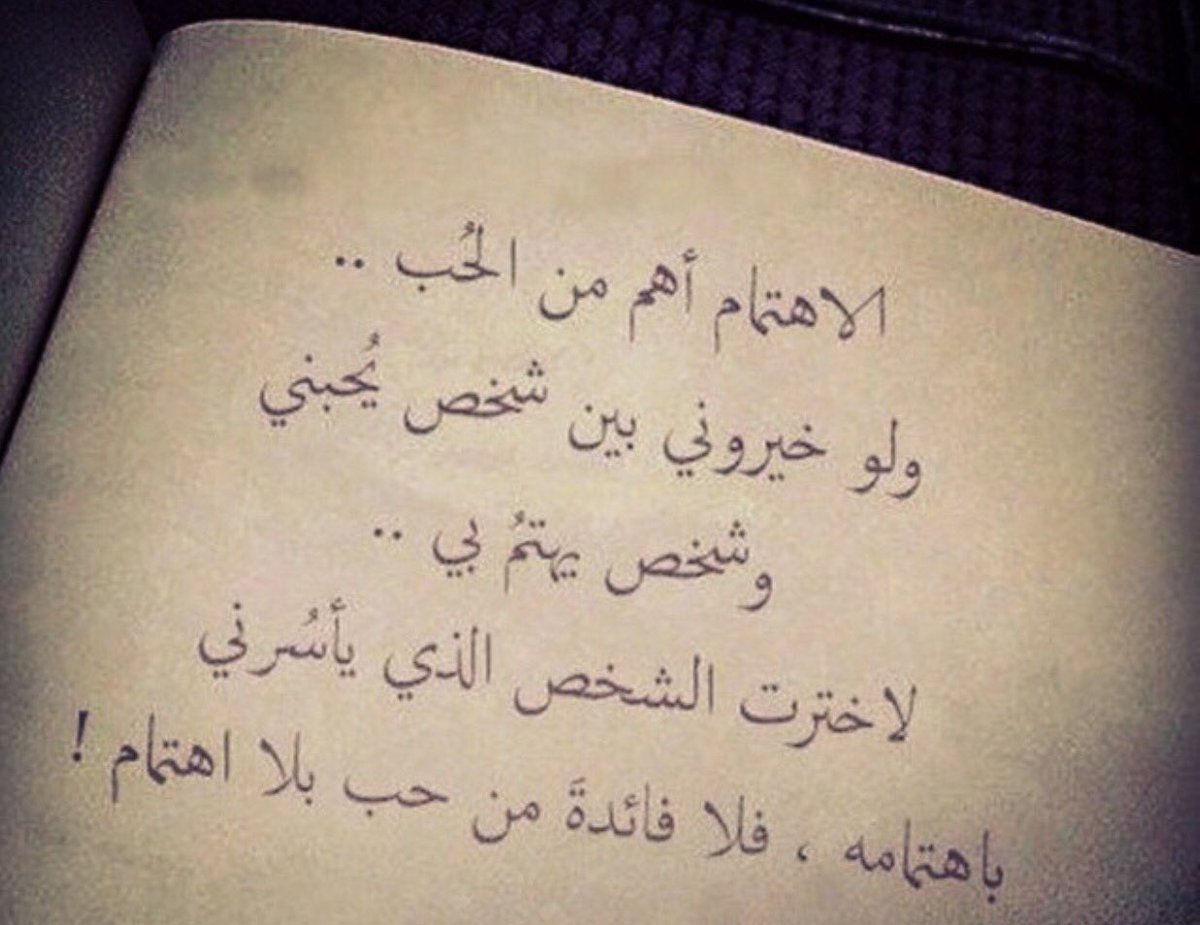 الاهتمام أهم من الحُب ..
ولو خيروني بين شخص يُحبني
وشخص يهتمُ بي ..
لاخترت الشخص الذي يأسُرني
باهتمامه ، فلا فائدةَ من حب بلا اهتمام !